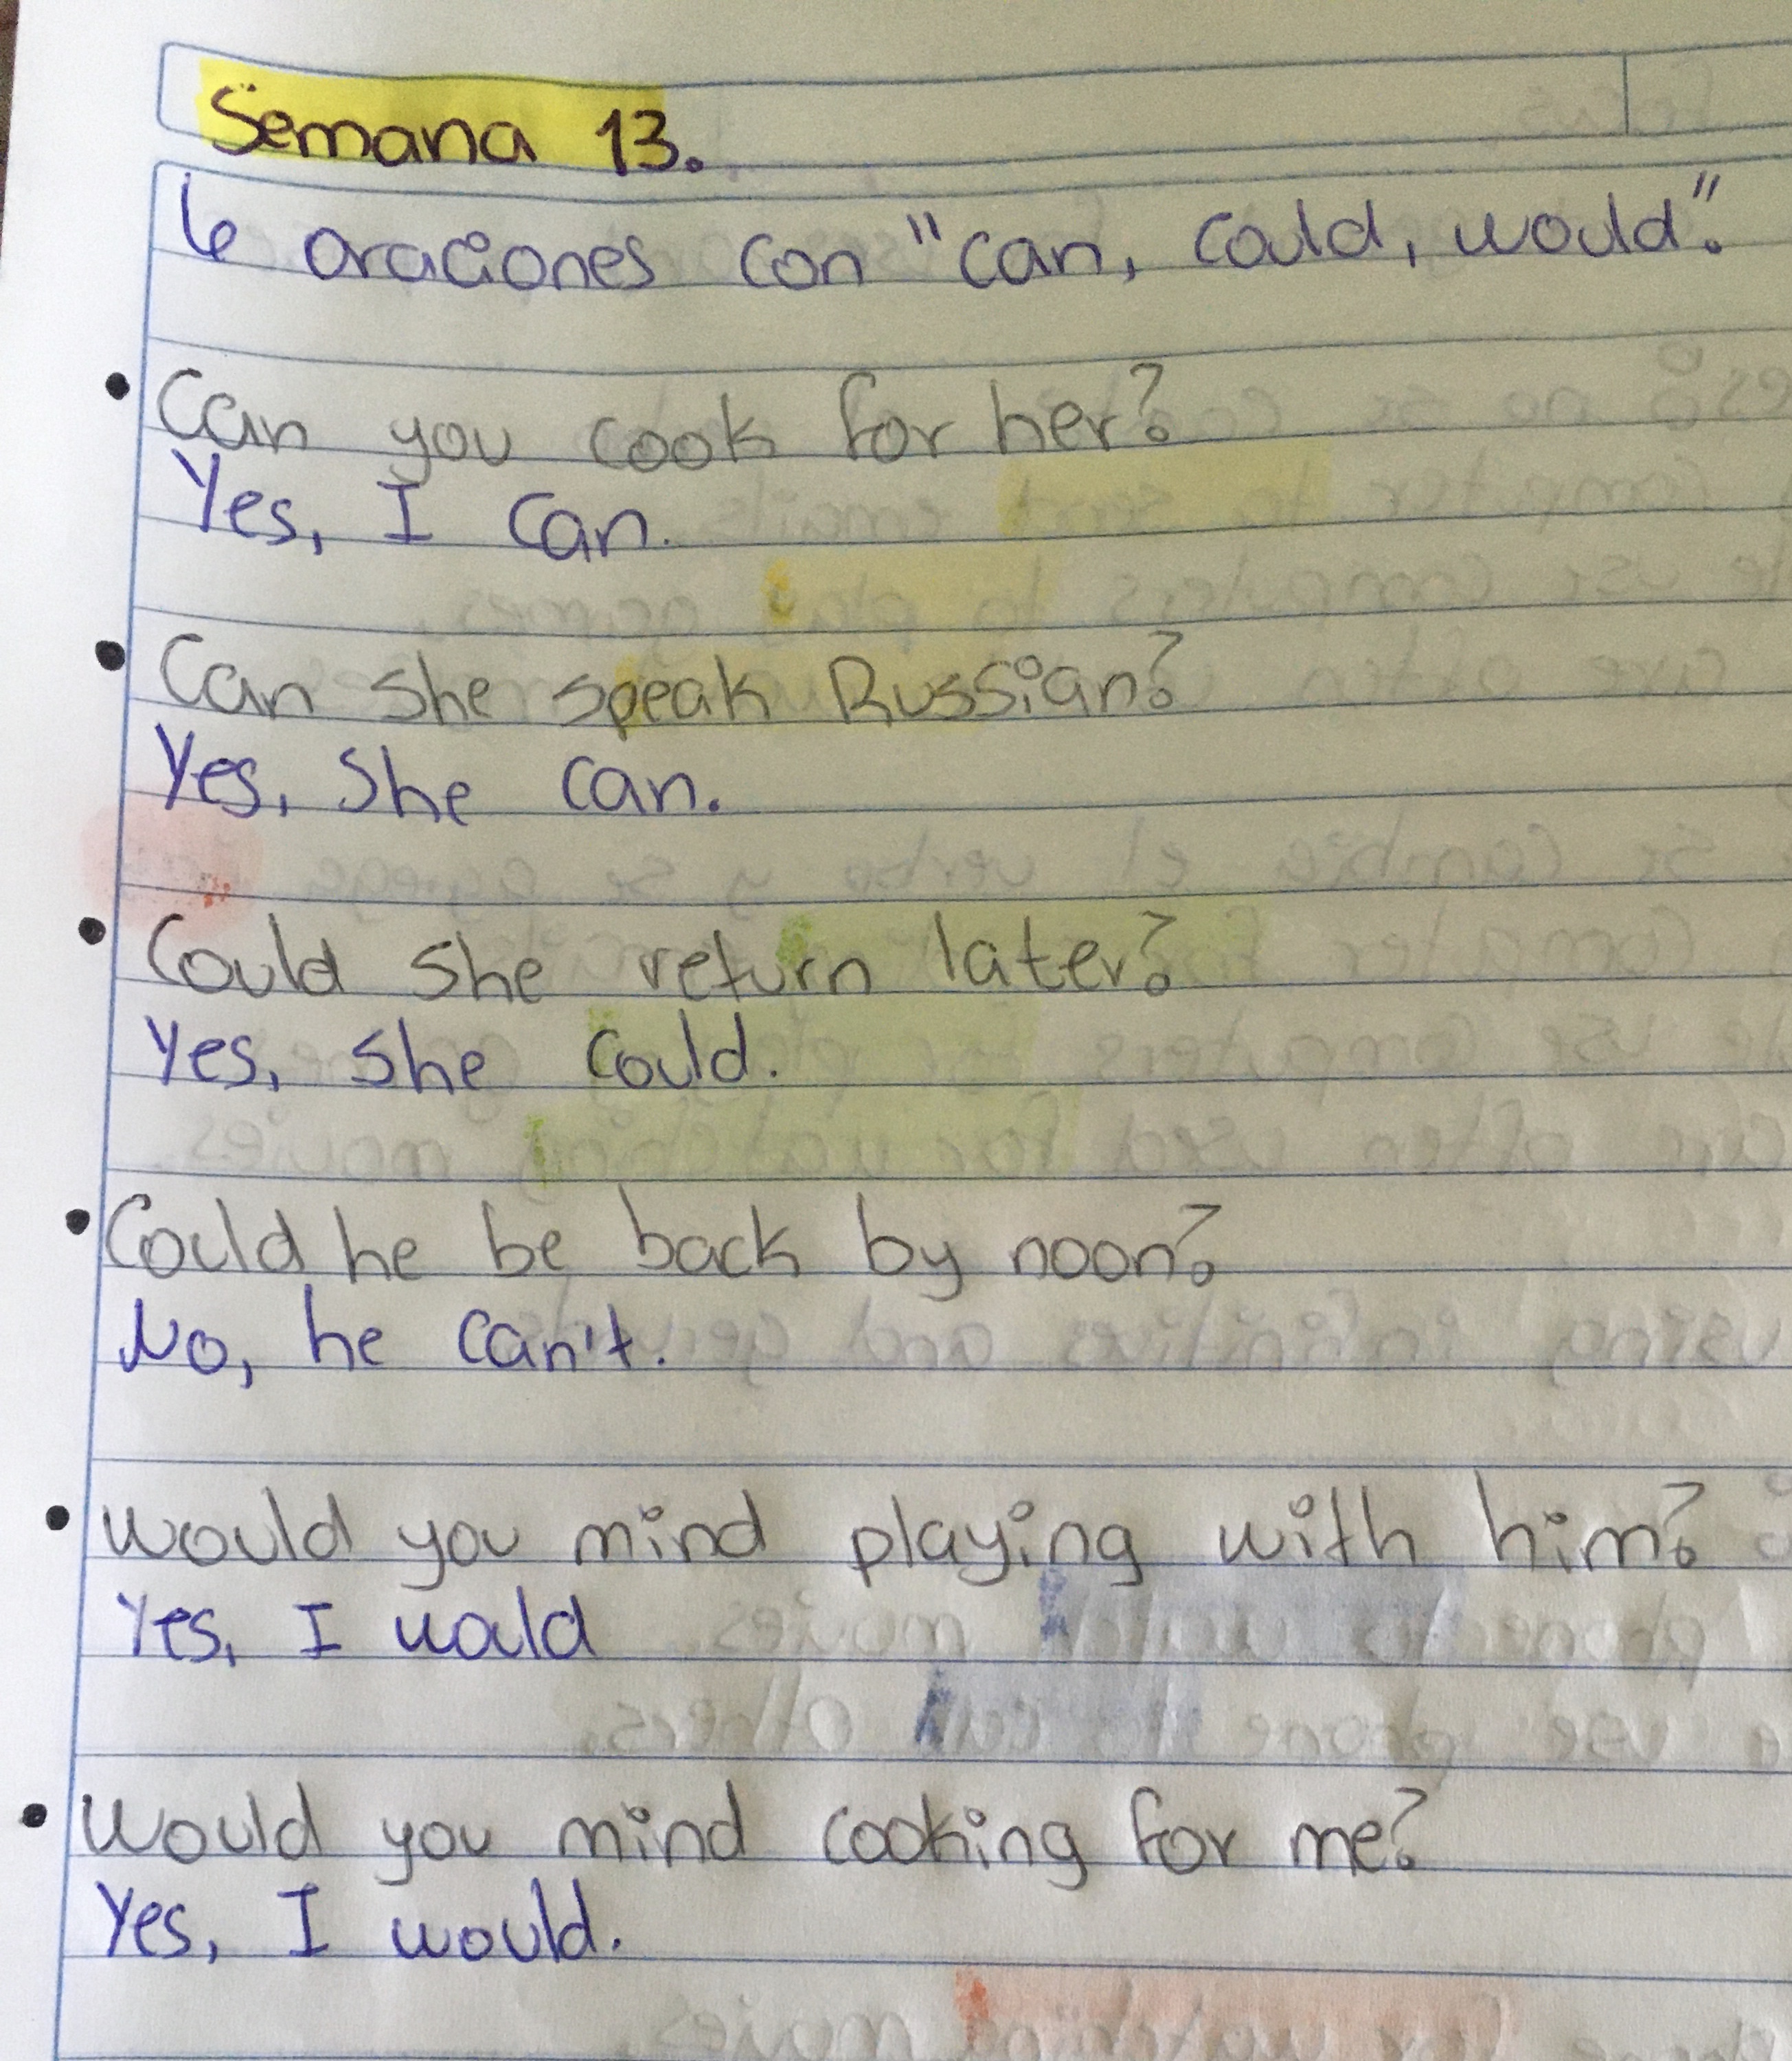 Semana 13.
6 oraciones con "can, could, would".
Can you cook for her?
Yes, I can.
Can she speak Russian?
Yes, She can.
Could she return later?
Yes, she could.
Could he be back by noon?
No, he can't.
Would you mind playing with him?
Yes, I uould
Would you mind cooking for me?
Yes, I would.